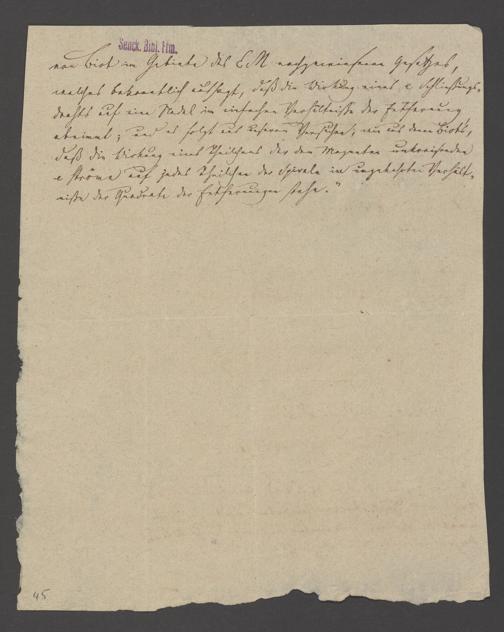 Senck. Bibl. Ffm.
von Biot im Gebiete des EM nachgewiesenen Gesetzes,
welches bekanntlich aussagt, daß die Wirkung eines e Schließungs-
drahts auf eine Nadel im einfachen Verhältnisse der Entfernung
abnimmt; und es folgt aus unseren Versuchen, wie aus denen Biots,
daß die Wirkung eines Theilchens der den Magneten umkreisenden
e Ströme auf jedes Theilchen der Spirale im umgekehrten Verhält-
nisse der Quadrate der Entfernungen stehe."
45